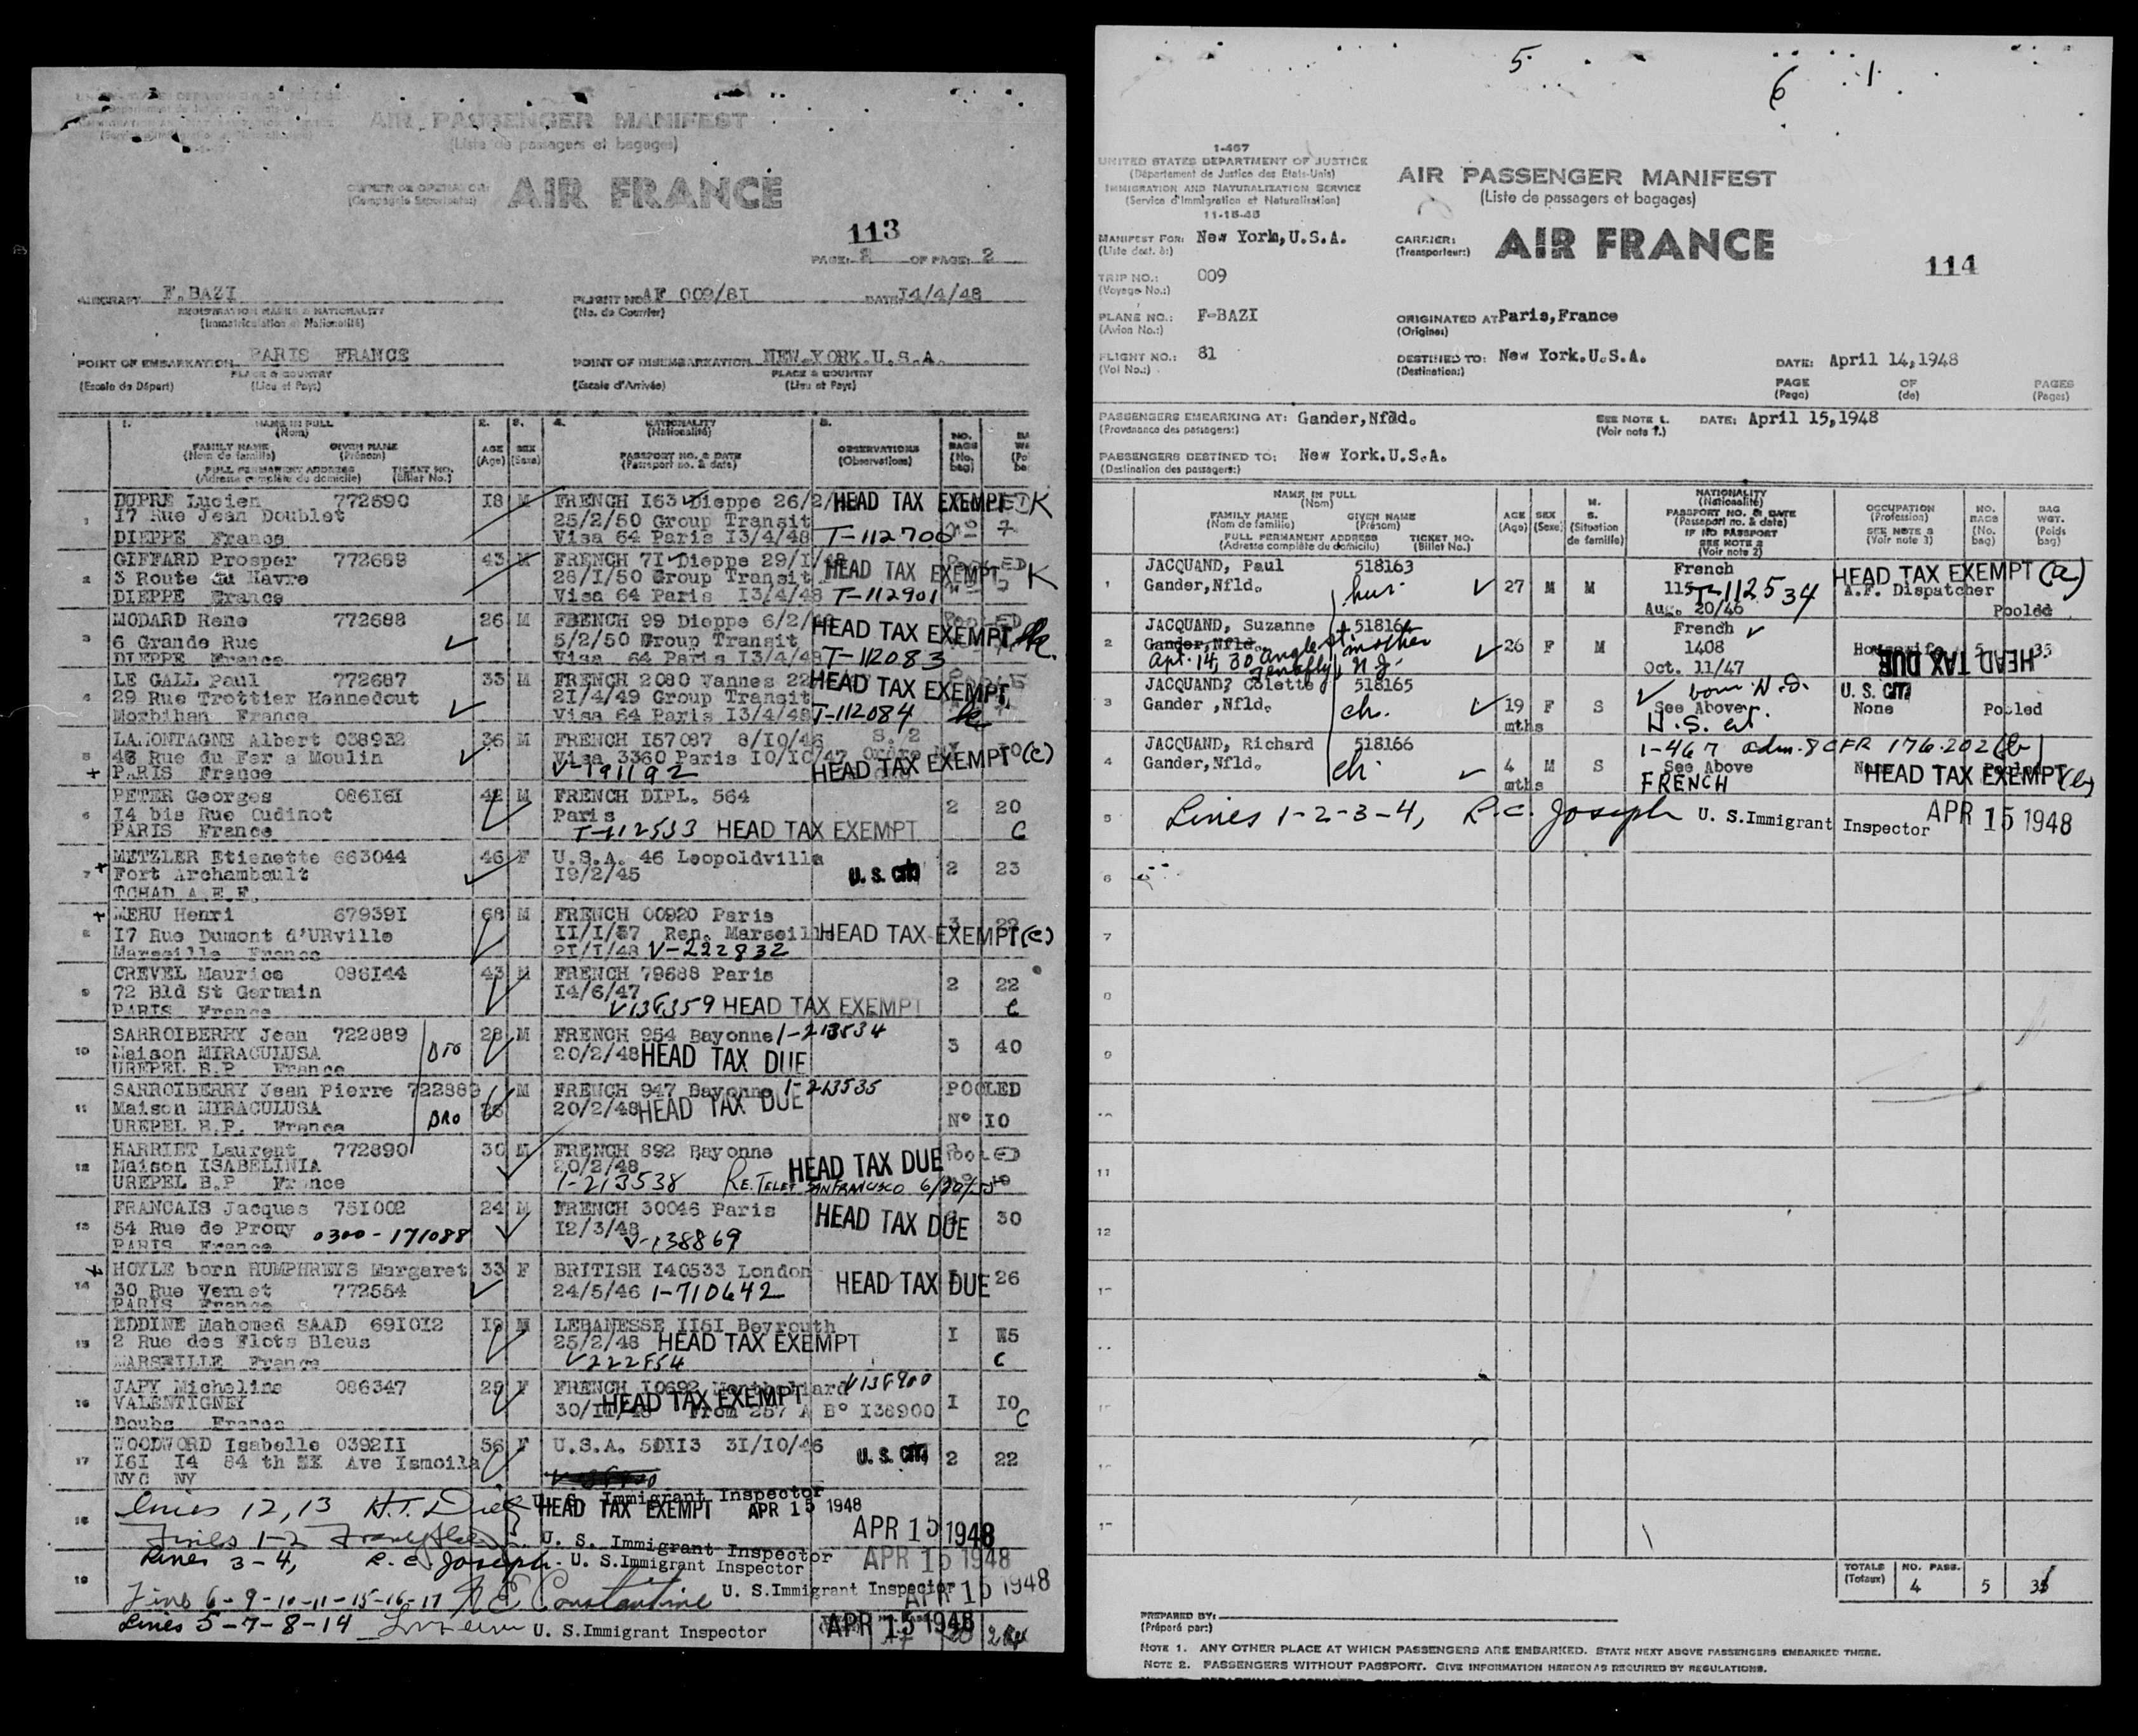 AIR PASSENGER MANIFEST
(Liste de passagers et bagages)
OWNER OR OPERATOR: AIR FRANCE
113
PAGE: 2 OF PAGE: 2
AIRCRAFT F.BAZI
REGISTRATION MARKS & NATIONALITY
(Immatriculation et Nationalité)
FLIGHT NO. AF 009/8I DATE I4/4/48
(No. de Courrier)
POINT OF EMBARKATION PARIS FRANCE
PLACE & COUNTRY
(Escale de Départ) (Lieu et Pays)
POINT OF DISEMBARKATION NEW.YORK.U.S.A.
PLACE & COUNTRY
(Escale d'Arrivée) (Lieu et Pays)
1. NAME IN FULL 2. 3. 4. NATIONALITY 5. NO.
(Nom) (Nationalité) BAGS
FAMILY NAME GIVEN NAME AGE SEX OBSERVATIONS
(Nom de famille) (Prénom) (Age) (Sexe) PASSPORT NO. & DATE (Observations)
FULL PERMANENT ADDRESS TICKET NO. (Passeport no. & date)
(Adresse complète du domicile) (Billet No.)
1 DUPRE Lucien 772690 I8 M FRENCH I63 Dieppe 26/2/ HEAD TAX EXEMPT K
17 Rue Jean Doublet 25/2/50 Group Transit
DIEPPE France Visa 64 Paris I3/4/48 T-112700 7
2 GIFFARD Prosper 772689 43 M FRENCH 7I Dieppe 29/I/48
3 Route du Havre 28/I/50 Group Transit HEAD TAX EXEMPT K
DIEPPE France Visa 64 Paris I3/4/48 T-112901
3 MODARD Rene 772688 26 M FRENCH 99 Dieppe 6/2/48 POOLED
6 Grande Rue 5/2/50 Group Transit HEAD TAX EXEMPT
DIEPPE France Visa 64 Paris I3/4/48 T-112083
4 LE GALL Paul 772687 33 M FRENCH 2080 Vannes 22 HEAD TAX EXEMPT
29 Rue Trottier Hannedout 2I/4/49 Group Transit
Morbihan France Visa 64 Paris I3/4/48 T-112084
5 LAMONTAGNE Albert 038932 36 M FRENCH I57087 8/I0/46
48 Rue du Fer a Moulin Visa 3360 Paris I0/I0/47
PARIS France V-191192 HEAD TAX EXEMPT (c)
6 PETER Georges 086I6I 42 M FRENCH DIPL. 564 2 20
I4 bis Rue Oudinot Paris
PARIS France T-112533 HEAD TAX EXEMPT C
7 METZLER Etienette 663044 46 F U.S.A. 46 Leopoldville 2 23
Fort Archambault I9/2/45 U. S. CIT
TCHAD A.E.F.
8 MEHU Henri 67939I 68 M FRENCH 00920 Paris 3 22
I7 Rue Dumont d'URville II/I/37 Ren. Marseille HEAD TAX EXEMPT (c)
Marseille France 2I/I/48 V-222832
9 CREVEL Maurice 086I44 43 M FRENCH 79688 Paris 2 22
72 Bld St Germain I4/6/47
PARIS France V138359 HEAD TAX EXEMPT C
10 SARROIBERRY Jean 722889 28 M FRENCH 954 Bayonne 1-213534 3 40
Maison MIRACULUSA BRO 20/2/48 HEAD TAX DUE
UREPEL B.P France
11 SARROIBERRY Jean Pierre 722889 M FRENCH 947 Bayonne 1-213535 POOLED
Maison MIRACULUSA BRO 20/2/48 HEAD TAX DUE
UREPEL B.P. France N° I0
12 HARRIET Laurent 772890 30 M FRENCH 892 Bayonne POOLED
Maison ISABELINIA 20/2/48 HEAD TAX DUE
UREPEL B.P France 1-213538 RE. TELET SAN FRANCISCO
13 FRANCAIS Jacques 75I002 24 M FRENCH 30046 Paris HEAD TAX DUE 30
54 Rue de Prony 0300-171088 I2/3/48
PARIS France V-138869
14 HOYLE born HUMPHREYS Margaret 33 F BRITISH I40533 London HEAD TAX DUE 26
30 Rue Vernet 772554 24/5/46 1-710642
PARIS France
15 EDDINE Mahomed SAAD 69I0I2 I9 M LEBANESSE II5I Beyrouth I
2 Rue des Flots Bleus 25/2/48 HEAD TAX EXEMPT
MARSEILLE France V222854 C
16 JAPY Micheline 086347 29 F FRENCH I0692 V138900 I I0
VALENTIGNEY HEAD TAX EXEMPT
Doubs France From 257 A B° I38900 C
17 WOODWORD Isabelle 0392II 56 F U.S.A. 5DII3 3I/I0/46 U. S. CIT 2 22
I6I I4 84 th Ave Ismoila
NYC NY
18 Lines 12, 13 U. S. Immigrant Inspector
HEAD TAX EXEMPT APR 15 1948
Lines 1-2 U. S. Immigrant Inspector APR 15 1948
Lines 3-4, R.C. Joseph U. S. Immigrant Inspector APR 15 1948
19 Line 6-9-10-11-15-16-17 N E Constantine U. S. Immigrant Inspector APR 15 1948
Lines 5-7-8-14 U. S. Immigrant Inspector APR 15 1948
5 6 1
1-467
UNITED STATES DEPARTMENT OF JUSTICE
(Département de Justice des Etats-Unis)
IMMIGRATION AND NATURALIZATION SERVICE
(Service d'Immigration et Naturalisation)
11-15-45
AIR PASSENGER MANIFEST
(Liste de passagers et bagages)
MANIFEST FOR: New York, U.S.A.
(Liste dest. à:)
CARRIER: AIR FRANCE
(Transporteur:)
114
TRIP NO.: 009
(Voyage No.:)
PLANE NO.: F-BAZI
(Avion No.:)
ORIGINATED AT Paris, France
(Origines)
FLIGHT NO.: 81
(Vol No.:)
DESTINED TO: New York.U.S.A.
(Destination:)
DATE: April 14,1948
PAGE OF PAGES
(Page) (de) (Pages)
PASSENGERS EMBARKING AT: Gander,Nfld. SEE NOTE 1. DATE: April 15,1948
(Provenance des passagers:) (Voir note 1.)
PASSENGERS DESTINED TO: New York.U.S.A.
(Destination des passagers:)
NAME IN FULL M. NATIONALITY
(Nom) S. (Nationalité) OCCUPATION NO. BAG
FAMILY NAME GIVEN NAME AGE SEX (Situation PASSPORT NO. & DATE (Profession) BAGS WGT.
(Nom de famille) (Prénom) (Age) (Sexe) de famille) (Passeport no. & date) SEE NOTE 3 (No. (Poids
FULL PERMANENT ADDRESS TICKET NO. IF NO PASSPORT (Voir note 3) bag) bag)
(Adresse complète du domicilu) (Billet No.) SEE NOTE 2
(Voir note 2)
1 JACQUAND, Paul 518163 27 M M French HEAD TAX EXEMPT (a)
Gander,Nfld. hus. 115 T-112534 A.F. Dispatcher
Aug. 20/46 Pooled
2 JACQUAND, Suzanne 26 F M French
Gander,Nfld. mother 1408 Housewife 5 35
Apt. 14, 30 Tenafly, N.J. Oct. 11/47 HEAD TAX DUE
3 JACQUAND, Colette 518165 19 F S born U.S. U. S. CIT
Gander ,Nfld. ch. mths See Above None Pooled
U.S. cit.
4 JACQUAND, Richard 518166 4 M S 1-467 adm. 8 CFR 176.202(b)
Gander,Nfld. ch. mths See Above
FRENCH HEAD TAX EXEMPT
5 Lines 1-2-3-4, R.C. Joseph U. S. Immigrant Inspector APR 15 1948
6
7
8
9
11
12
TOTALS NO. PASS.
(Totaux) 4 5
PREPARED BY:
(Préparé par:)
NOTE 1. ANY OTHER PLACE AT WHICH PASSENGERS ARE EMBARKED. STATE NEXT ABOVE PASSENGERS EMBARKED THERE.
NOTE 2. PASSENGERS WITHOUT PASSPORT. GIVE INFORMATION HEREON AS REQUIRED BY REGULATIONS.